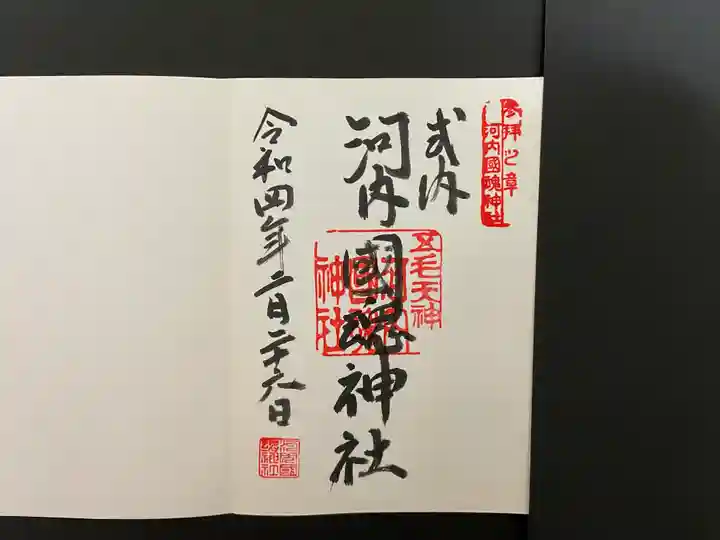 参拝之章
河内國魂神社
式内
河内國魂神社
五毛天神
令和四年二月二十六日